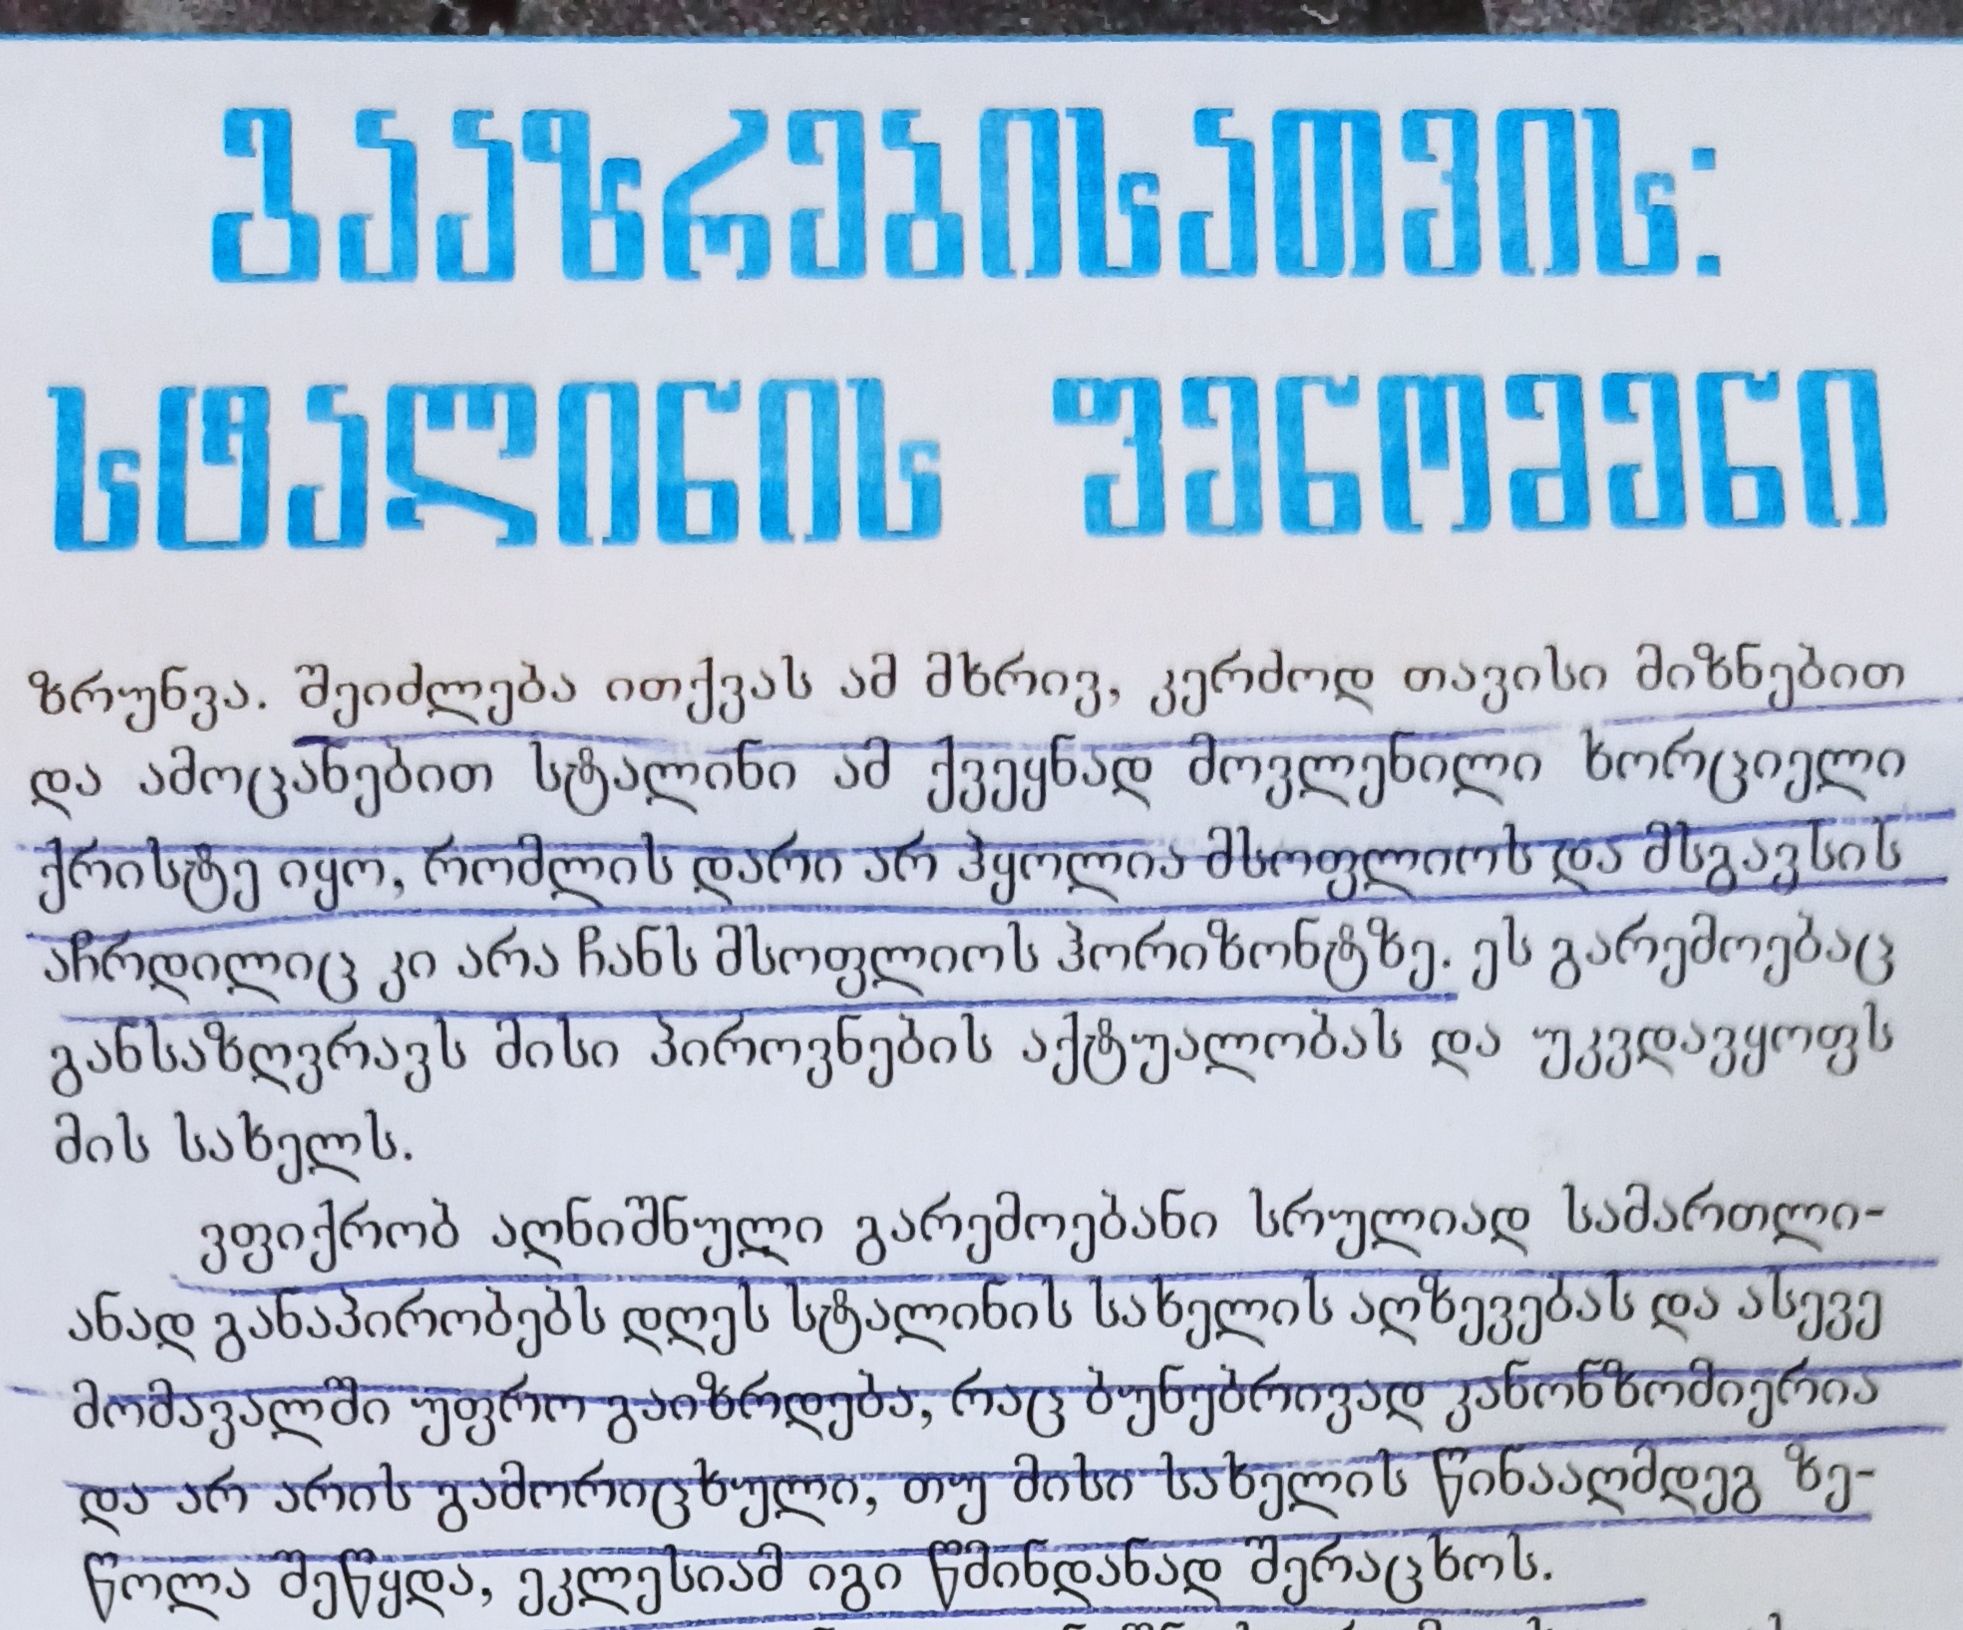 გააზრებისათვის:
სტალინის ფენომენი
ზრუნვა. შეიძლება ითქვას ამ მხრივ, კერძოდ თავისი მიზნებით
და ამოცანებით სტალინი ამ ქვეყნად მოვლენილი ხორციელი
ქრისტე იყო, რომლის დარი არ ჰყოლია მსოფლიოს და მსგავსის
აჩრდილიც კი არა ჩანს მსოფლიოს ჰორიზონტზე. ეს გარემოებაც
განსაზღვრავს მისი პიროვნების აქტუალობას და უკვდავყოფს
მის სახელს.
ვფიქრობ აღნიშნული გარემოებანი სრულიად სამართლი-
ანად განაპირობებს დღეს სტალინის სახელის აღზევებას და ასევე
მომავალში უფრო გაიზრდება, რაც ბუნებრივად კანონზომიერია
და არ არის გამორიცხული, თუ მისი სახელის წინააღმდეგ ზე-
წოლა შეწყდა, ეკლესიამ იგი წმინდანად შერაცხოს.